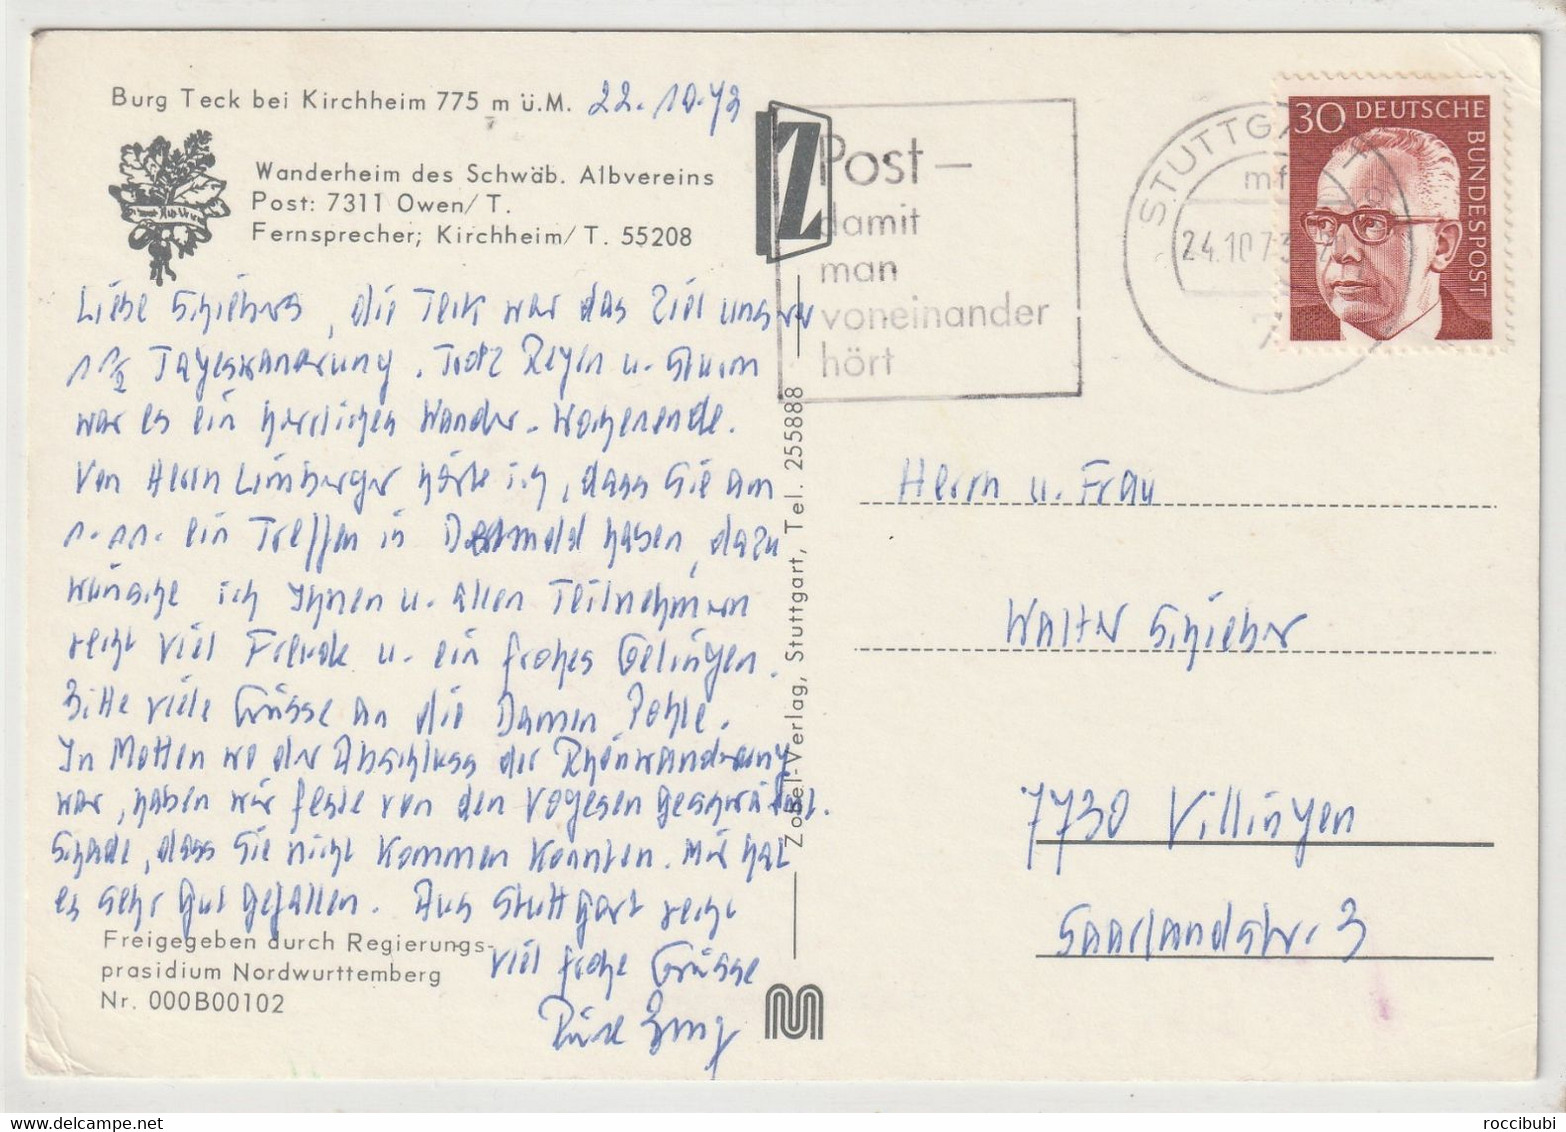 Burg Teck bei Kirchheim 775 m ü.M. 22.10.73
Wanderheim des Schwäb. Albvereins
Post: 7311 Owen/T.
Fernsprecher; Kirchheim/T. 55208
Liebe Schiebers, die Teck war das Ziel unserer
1 1/2 Tageswanderung. Trotz Regen u. Sturm
war es ein herrliches Wander-Wochenende.
Von Herrn Limberger hörte ich, dass Sie am
1.11. ein Treffen in Detmold haben, dazu
wünsche ich Ihnen u. allen Teilnehmern
recht viel Freude u. ein frohes Gelingen.
Bitte viele Grüsse an die Damen Pohle.
In Motten wo der Abschluss der Rhönwanderung
war, haben wir feste von den Vogesen geschwärmt.
Schade, dass Sie nicht kommen konnten. Mir hat
es sehr gut gefallen. Aus Stuttgart recht
viel frohe Grüsse
Freigegeben durch Regierungs-
prasidium Nordwurttemberg
Nr. 000B00102
Zobel-Verlag, Stuttgart, Tel. 255888
Z
Post –
damit
man
voneinander
hört
STUTTGART
mf
24.10.73
7
30 DEUTSCHE
BUNDESPOST
Herrn u. Frau
Walter Schieber
7730 Villingen
Saarlandstr. 3
roccibubi